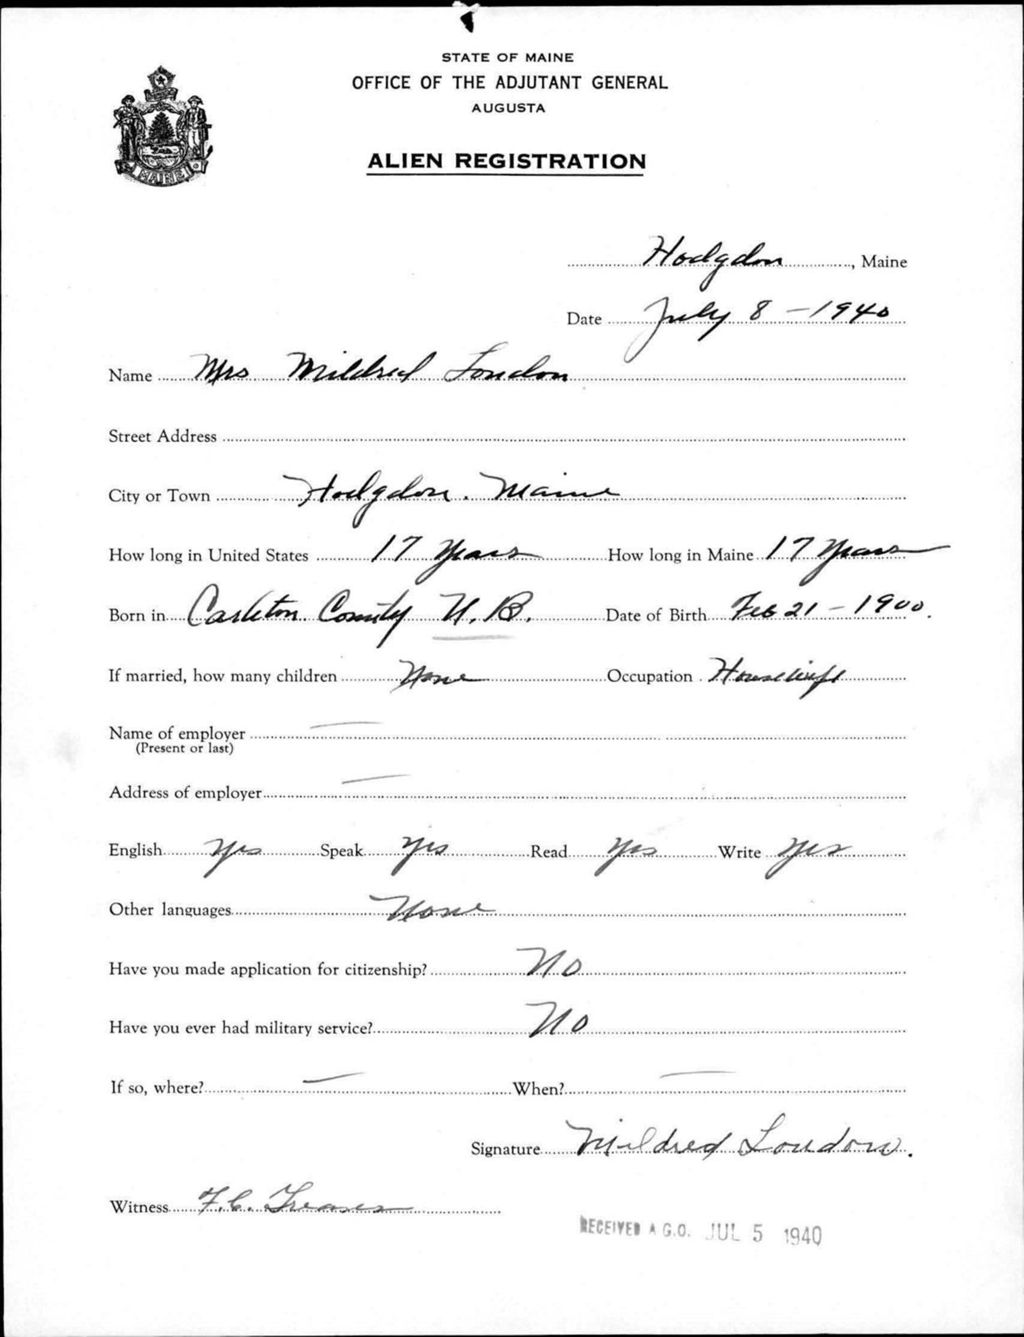 STATE OF MAINE
OFFICE OF THE ADJUTANT GENERAL
AUGUSTA
ALIEN REGISTRATION
MAINE
Hodgdon, Maine
Date July 8 - 1940
Name Mrs Mildred Loudon
Street Address
City or Town Hodgdon. Maine
How long in United States 17 Years How long in Maine 17 Years
Born in Carleton County N.B. Date of Birth Feb 21 - 1900.
If married, how many children None Occupation Housewife
Name of employer —
(Present or last)
Address of employer —
English Yes Speak Yes Read Yes Write Yes
Other languages None
Have you made application for citizenship? No
Have you ever had military service? No
If so, where? — When? —
Signature Mildred Loudon.
Witness F.C.
RECEIVED A.G.O. JUL 5 1940